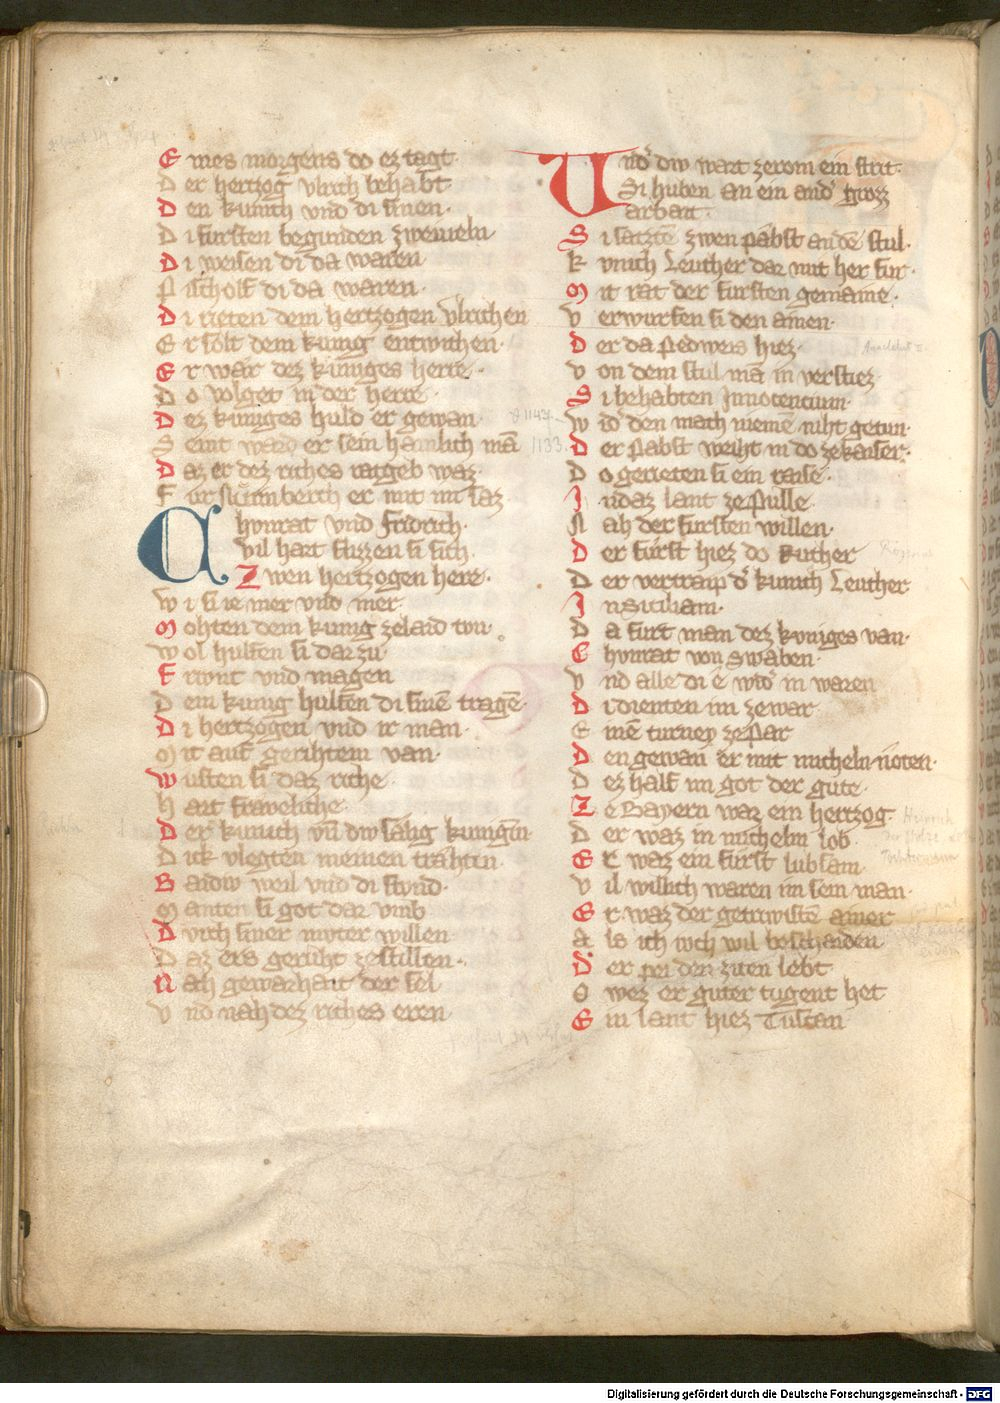 E ines morgens do ez tagt·
D er hertzog vlrich behabt
D en kunich vnd di sinen·
D i fursten begunden zweiueln
D i weisen di da waren
P ischolf di da waren·
D i rieten dem hertzogen Vlrichen
E r solt dem kunig entwichen·
E r wär dez kuniges herre·
D o volget in der herre·
D ez kuniges huld er gewan·
S eint ward er sein haimlich mā
D az er dez riches ratgeb waz·
F ur Nurmberch er mit im saz·
Chvnrat vnd Fridrich·
vil hart fluzzen si sich·
Zwen hertzogen here·
W i si ie mer vnd mer·
M ohten dem kunig zelaid tvn·
W ol hulfen si darzu·
F rivnt vnd magen
D em kunig hulfen di sinē tragē·
D i hertzogen vnd ir man·
M it auf gerihtem van·
W usten si daz riche·
H art fraveliche·
D er kunich vn̄ div sälig kunigin
D ick vlegten meinen trähtin·
B aidiv weil vnd di stvnd·
M anten si got dar vmb
D vrch siner mvter willen
D az ers gerüht zestillen·
N ach gewarhait der sel
V nd nah dez riches eren·
Vnd͛ div wart zerom ein strit·
Si huben an ein and͛ grozz
arbait·
S i satztē zwen pabst an dē stul·
K vnich Leuther dar mit her fur·
M it rat der fursten gemaine·
V erwurfen si den ainen·
D er da Pedweis hiez·
V on dem stul mā in verstiez·
S i behabten Innotencium·
W id͛ den mach niemē niht getun·
D er Pabst weiht in do ze kaiser·
D o gerieten si ein raise·
I n daz lant ze Pulle·
N ah der fursten willen·
D er furst hiez do Ruther
D er vertraip d͛ kunich Leuther
I n Siciliam·
D a furt man dez kvniges van·
C hvnrat von Swaben·
V nd alle di ē wid͛ in waren
D i dienten im zewar
E inē turney ze Par
D en gewan er mit micheln nöten·
D ez half im got der gute·
Z e Bayern waz ein hertzog·
D er waz in micheln lob·
E r waz ein furst lubsam·
V il willich waren im sein man·
E r waz der getriwistē ainer
A ls ich iwch wil beschaiden
D er pei den ziten lebt·
O wez er guter tugent het
E in lant hiez Tuscan
1147
1133
Digitalisierung gefördert durch die Deutsche Forschungsgemeinschaft - DFG